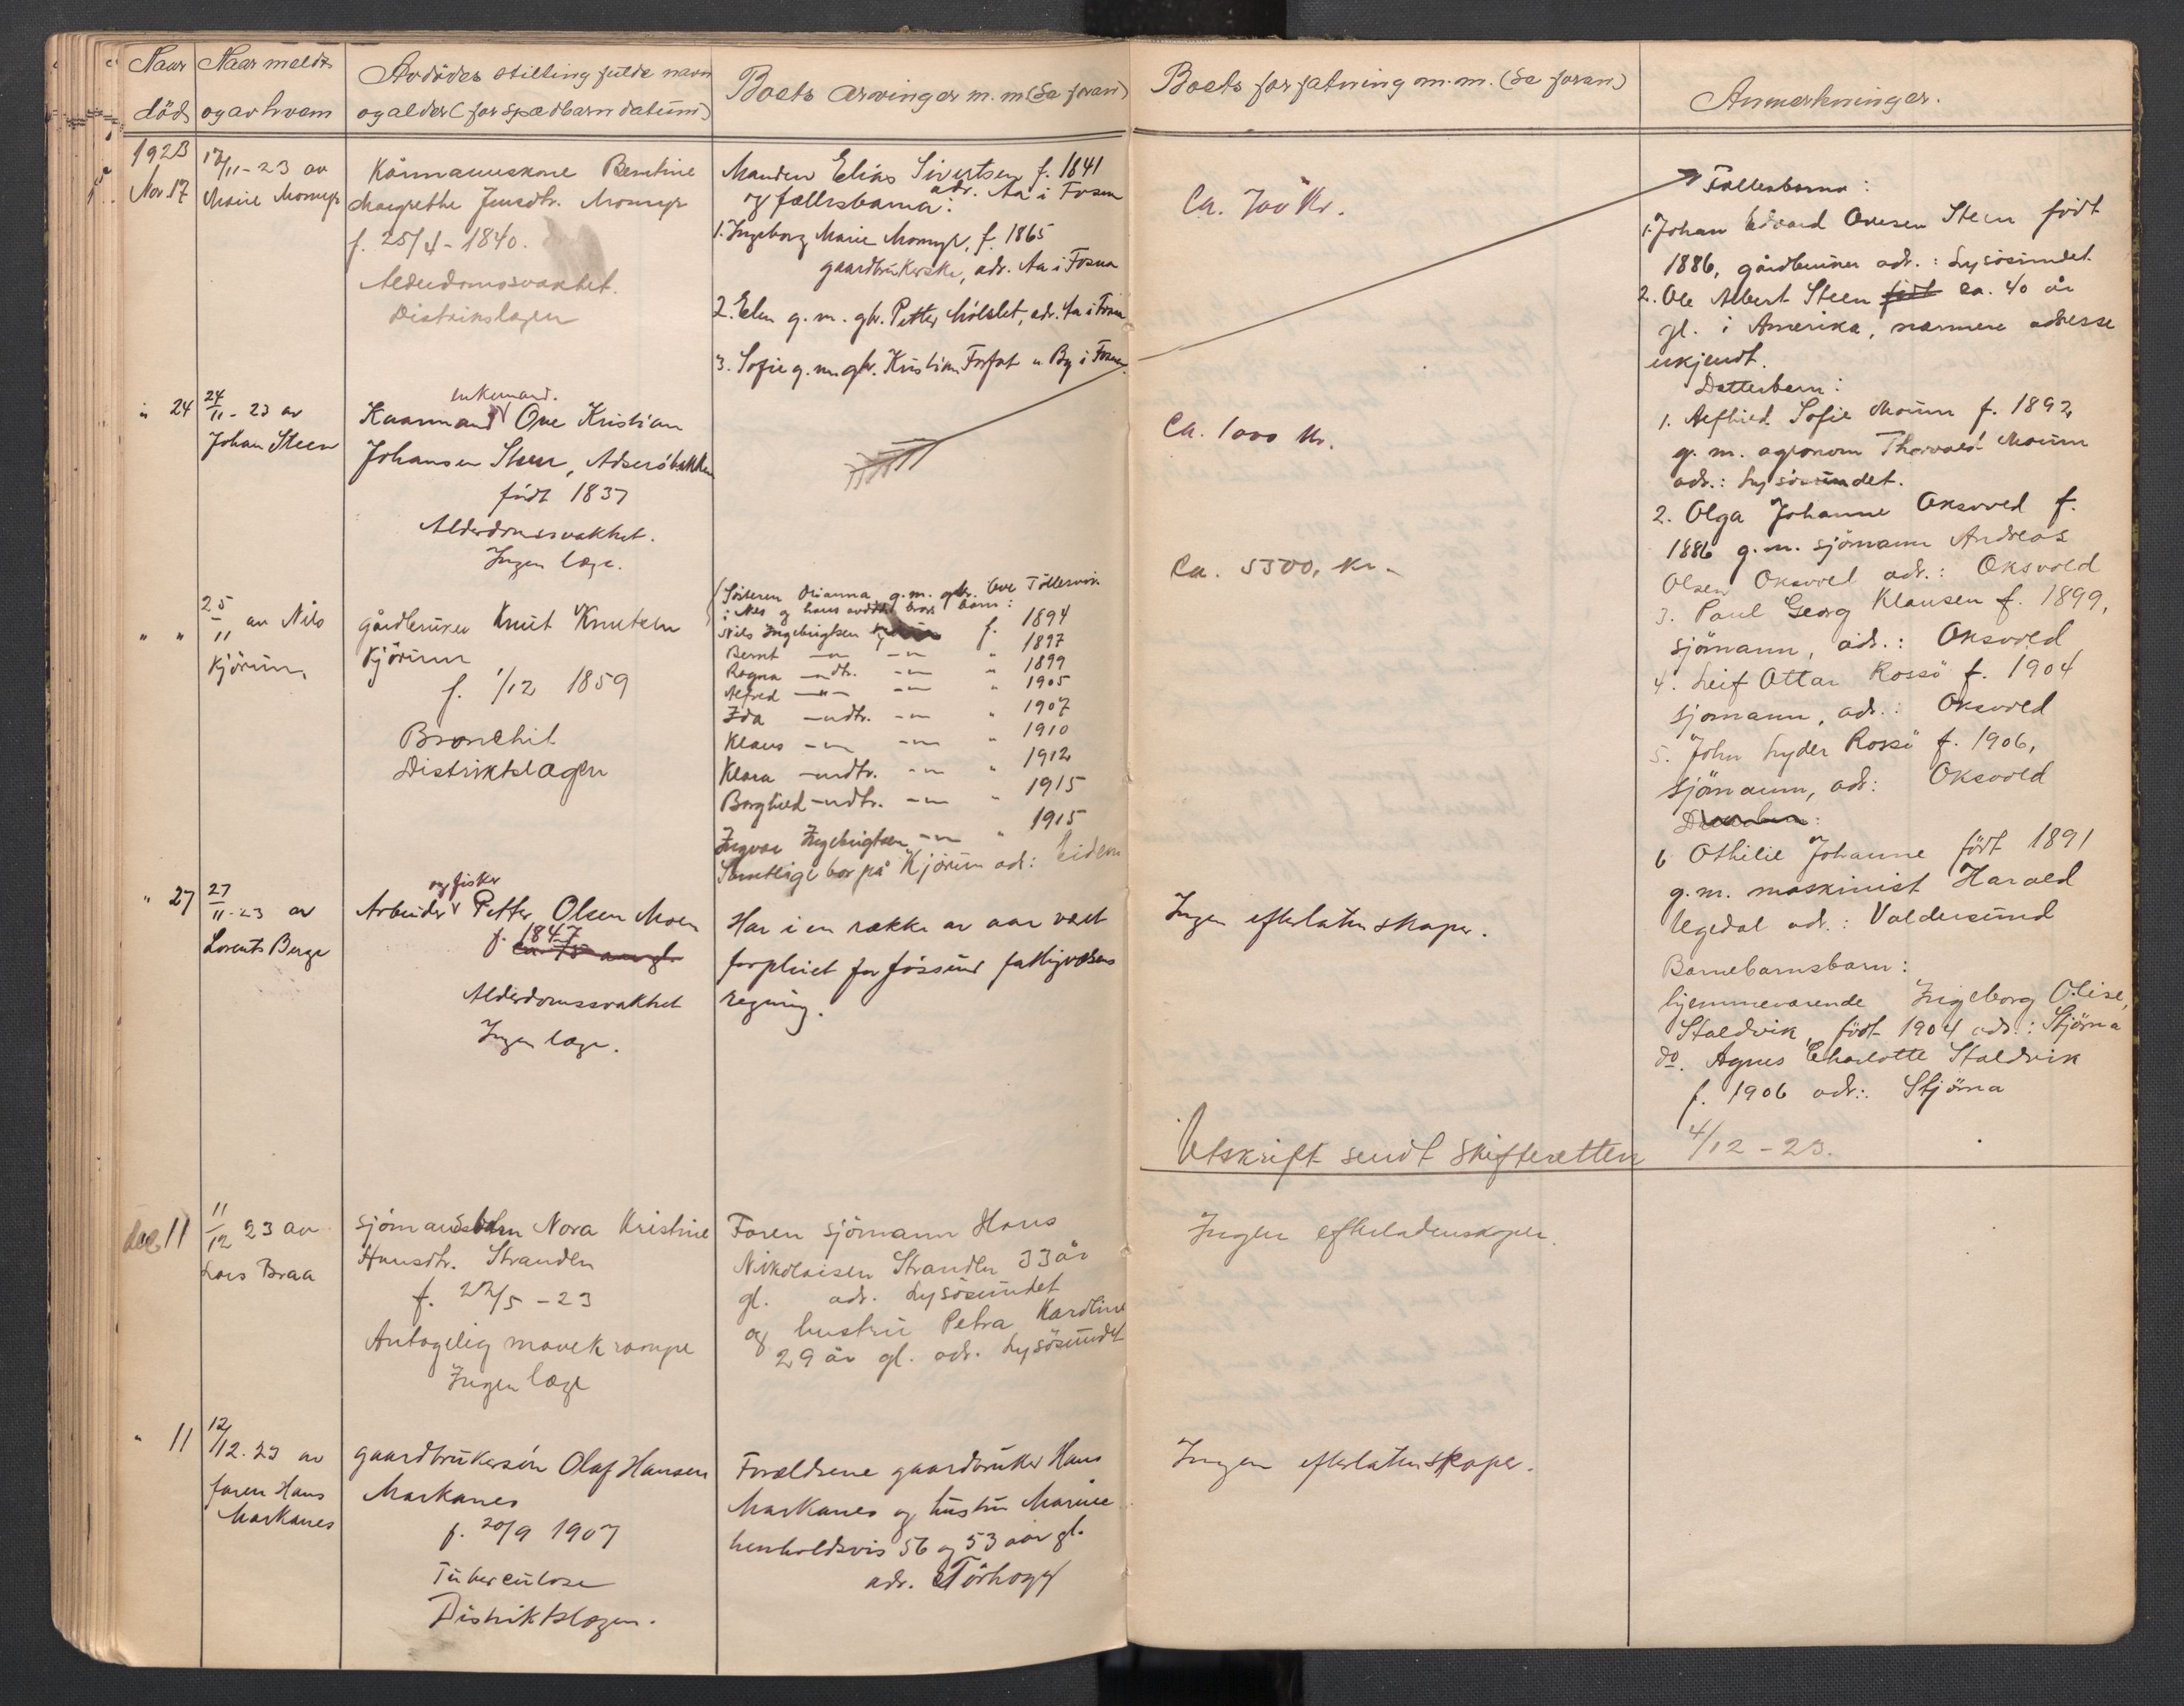 Naar
död
Naar meldt
og av hvem
Avdödes stilling fulde navn
og alder (for spædbarn datum)
Boets arvinger m.m (Se foran)
Boets forfatning m.m. (Se foran)
Anmerkninger.
1923
Nov 17
17/11-23 av
Marie Momyr
Kårmannskone Berntine
Margrethe Jensdtr. Momyr
f. 25/4-1840.
Alderdomssvakhet.
Distrikslægen
Manden Elias Sivertsen f. 1841
adr. Aa i Fosen
og fællesbarna:
1. Ingeborg Marie Momyr, f. 1865
gaardbrukerske, adr. Aa i Fosna
2. Elen g.m. gbr. Petter Mölslet, adr. Aa i Fosna
3. Sofie g.m. gbr. Kristian Forfot u. By i Fosen
Ca. 700 Kr.
" 24
24/11-23 av
Johan Steen
enkemand.
Kaarmand Ove Kristian
Johansen Steen, Adseröbakken
födt 1837
Alderdomssvakhet.
Ingen læge.
Ca. 1000 Kr.
" "
25/11 av Nils
Kjörum,
gårdbruker Knut Knutsen
Kjörum
f. 1/12 1859
Bronchit
Distriktslægen
Søsteren Olianna g.m. gbr. Ove Töllervik
i Nes og hans avdøde brors barn:
Nils Ingebrigtsen f. 1894
Bernt —"— —"— " 1897
Ragna —"dtr. —"— " 1899
Alfred —"— —"— " 1905
Ida —"dtr. —"— " 1907
Klaus —"— —"— " 1910
Klara —"dtr. —"— " 1912
Borghild —"dtr. —"— " 1915
Ingvar Ingebrigtsen —"— " 1915
Samtlige bor på Kjörum adr: Eidem
Ca. 5500, kr.-
" 27
27/11-23 av
Lorents Berge
og fisker
Arbeider Petter Olsen Moen
f. 1847
ca. 75 aar gl.
Alderdomssvakhet
Ingen læge.
Har i en række av aar vært
forpleiet for Jössund fattigvæsens
regning.
Ingen efterlatenskaper.
Fællesbarna:
1. Johan Edvard Ovesen Steen födt
1886, gårdbruker adr.: Lysösundet
2. Ole Albert Steen födt ca. 40 år
gl. i Amerika, nærmere adresse
ukjendt.
Datterbarn:
1. Alfhild Sofie Moum f. 1892,
g. m. agronom Thorvald Moum
adr.: Lysösundet.
2. Olga Johanne Oksvold f.
1886 g.m. sjömann Andreas
Olsen Oksvol adr.: Oksvold
3. Paul Georg Klausen f. 1899,
sjömann, adr.: Oksvold
4. Leif Ottar Rossö f. 1904
sjomann, adr.: Oksvold
5. John Lyder Rossö f. 1906,
sjömann, adr: Oksvold
6 Othilie Johanne födt 1891
g.m. maskinist Harald
Ugedal adr.: Valdersund
Barnebarnsbarn:
hjemmeværende Ingeborg Olise,
Staldvik, födt 1904 adr.: Stjörna
do. Agnes Charlotte Staldvik
f. 1906 adr.: Stjörna
Utskrift sendt Skifteretten 4/12-23.
Dec 11
11/12 23 av
Lars Braa
Sjömandsbarn Nora Kristine
Hansdtr. Stranden
f. 22/5-23
Antagelig mavekrampe
Ingen læge
Faren sjömann Hans
Nikolaisen Stranden 33 år
gl. adr. Lysösundet
og hustru Petra Karoline
29 år gl. adr. Lysösundet
Ingen efterladenskaper.
" 11
12/12.23 av
faren Hans
Markanes
gaardbrukersön Olaf Hansen
Markanes
f. 20/9 1907
Tuberculose
Distriktslægen.
Forældrene gaardbruker Hans
Markanes og hustru Marine
henholdsvis 56 og 53 aar gl.
adr. Tårhogg
Ingen efterlatenskaper.